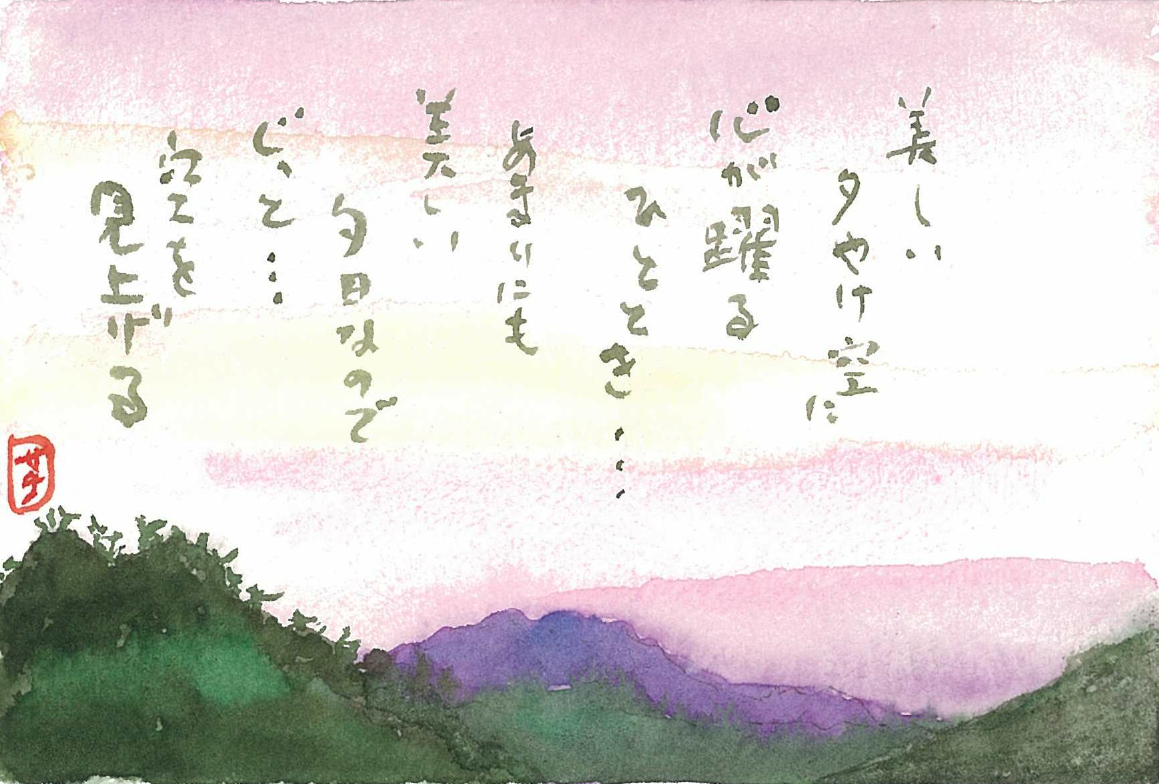 美しい
夕やけ空に
心が躍る
ひととき…
あまりにも
美しい
夕日なので
じっと…
空を
見上げる